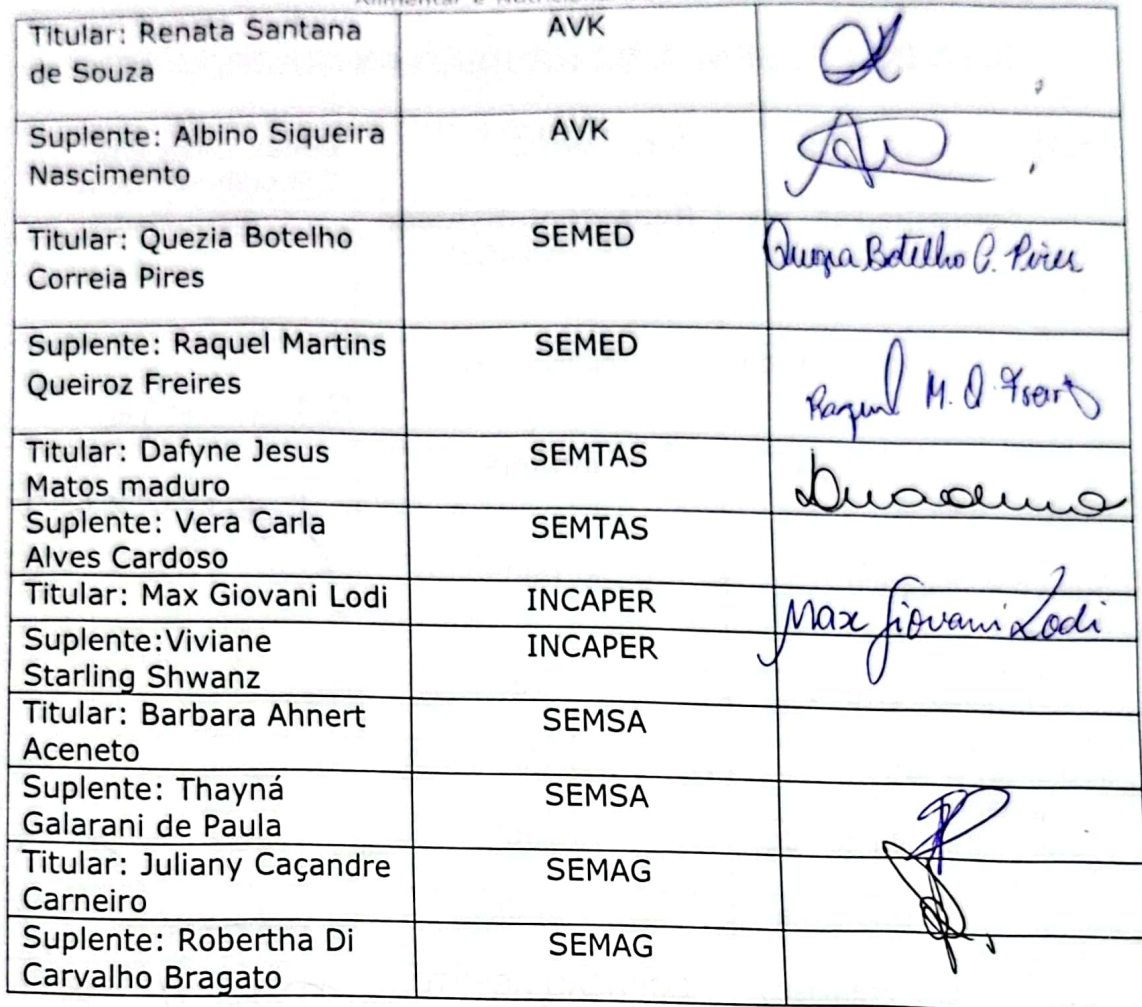 Alimentar e Nutricional
Titular: Renata Santana
de Souza
AVK
Suplente: Albino Siqueira
Nascimento
AVK
Titular: Quezia Botelho
Correia Pires
SEMED
Quezia Botelho C. Pires
Suplente: Raquel Martins
Queiroz Freires
SEMED
Raquel M. Q. Freires
Titular: Dafyne Jesus
Matos maduro
SEMTAS
Dmaduro
Suplente: Vera Carla
Alves Cardoso
SEMTAS
Titular: Max Giovani Lodi
INCAPER
Max Giovani Lodi
Suplente:Viviane
Starling Shwanz
INCAPER
Titular: Barbara Ahnert
Aceneto
SEMSA
Suplente: Thayná
Galarani de Paula
SEMSA
Titular: Juliany Caçandre
Carneiro
SEMAG
Suplente: Robertha Di
Carvalho Bragato
SEMAG